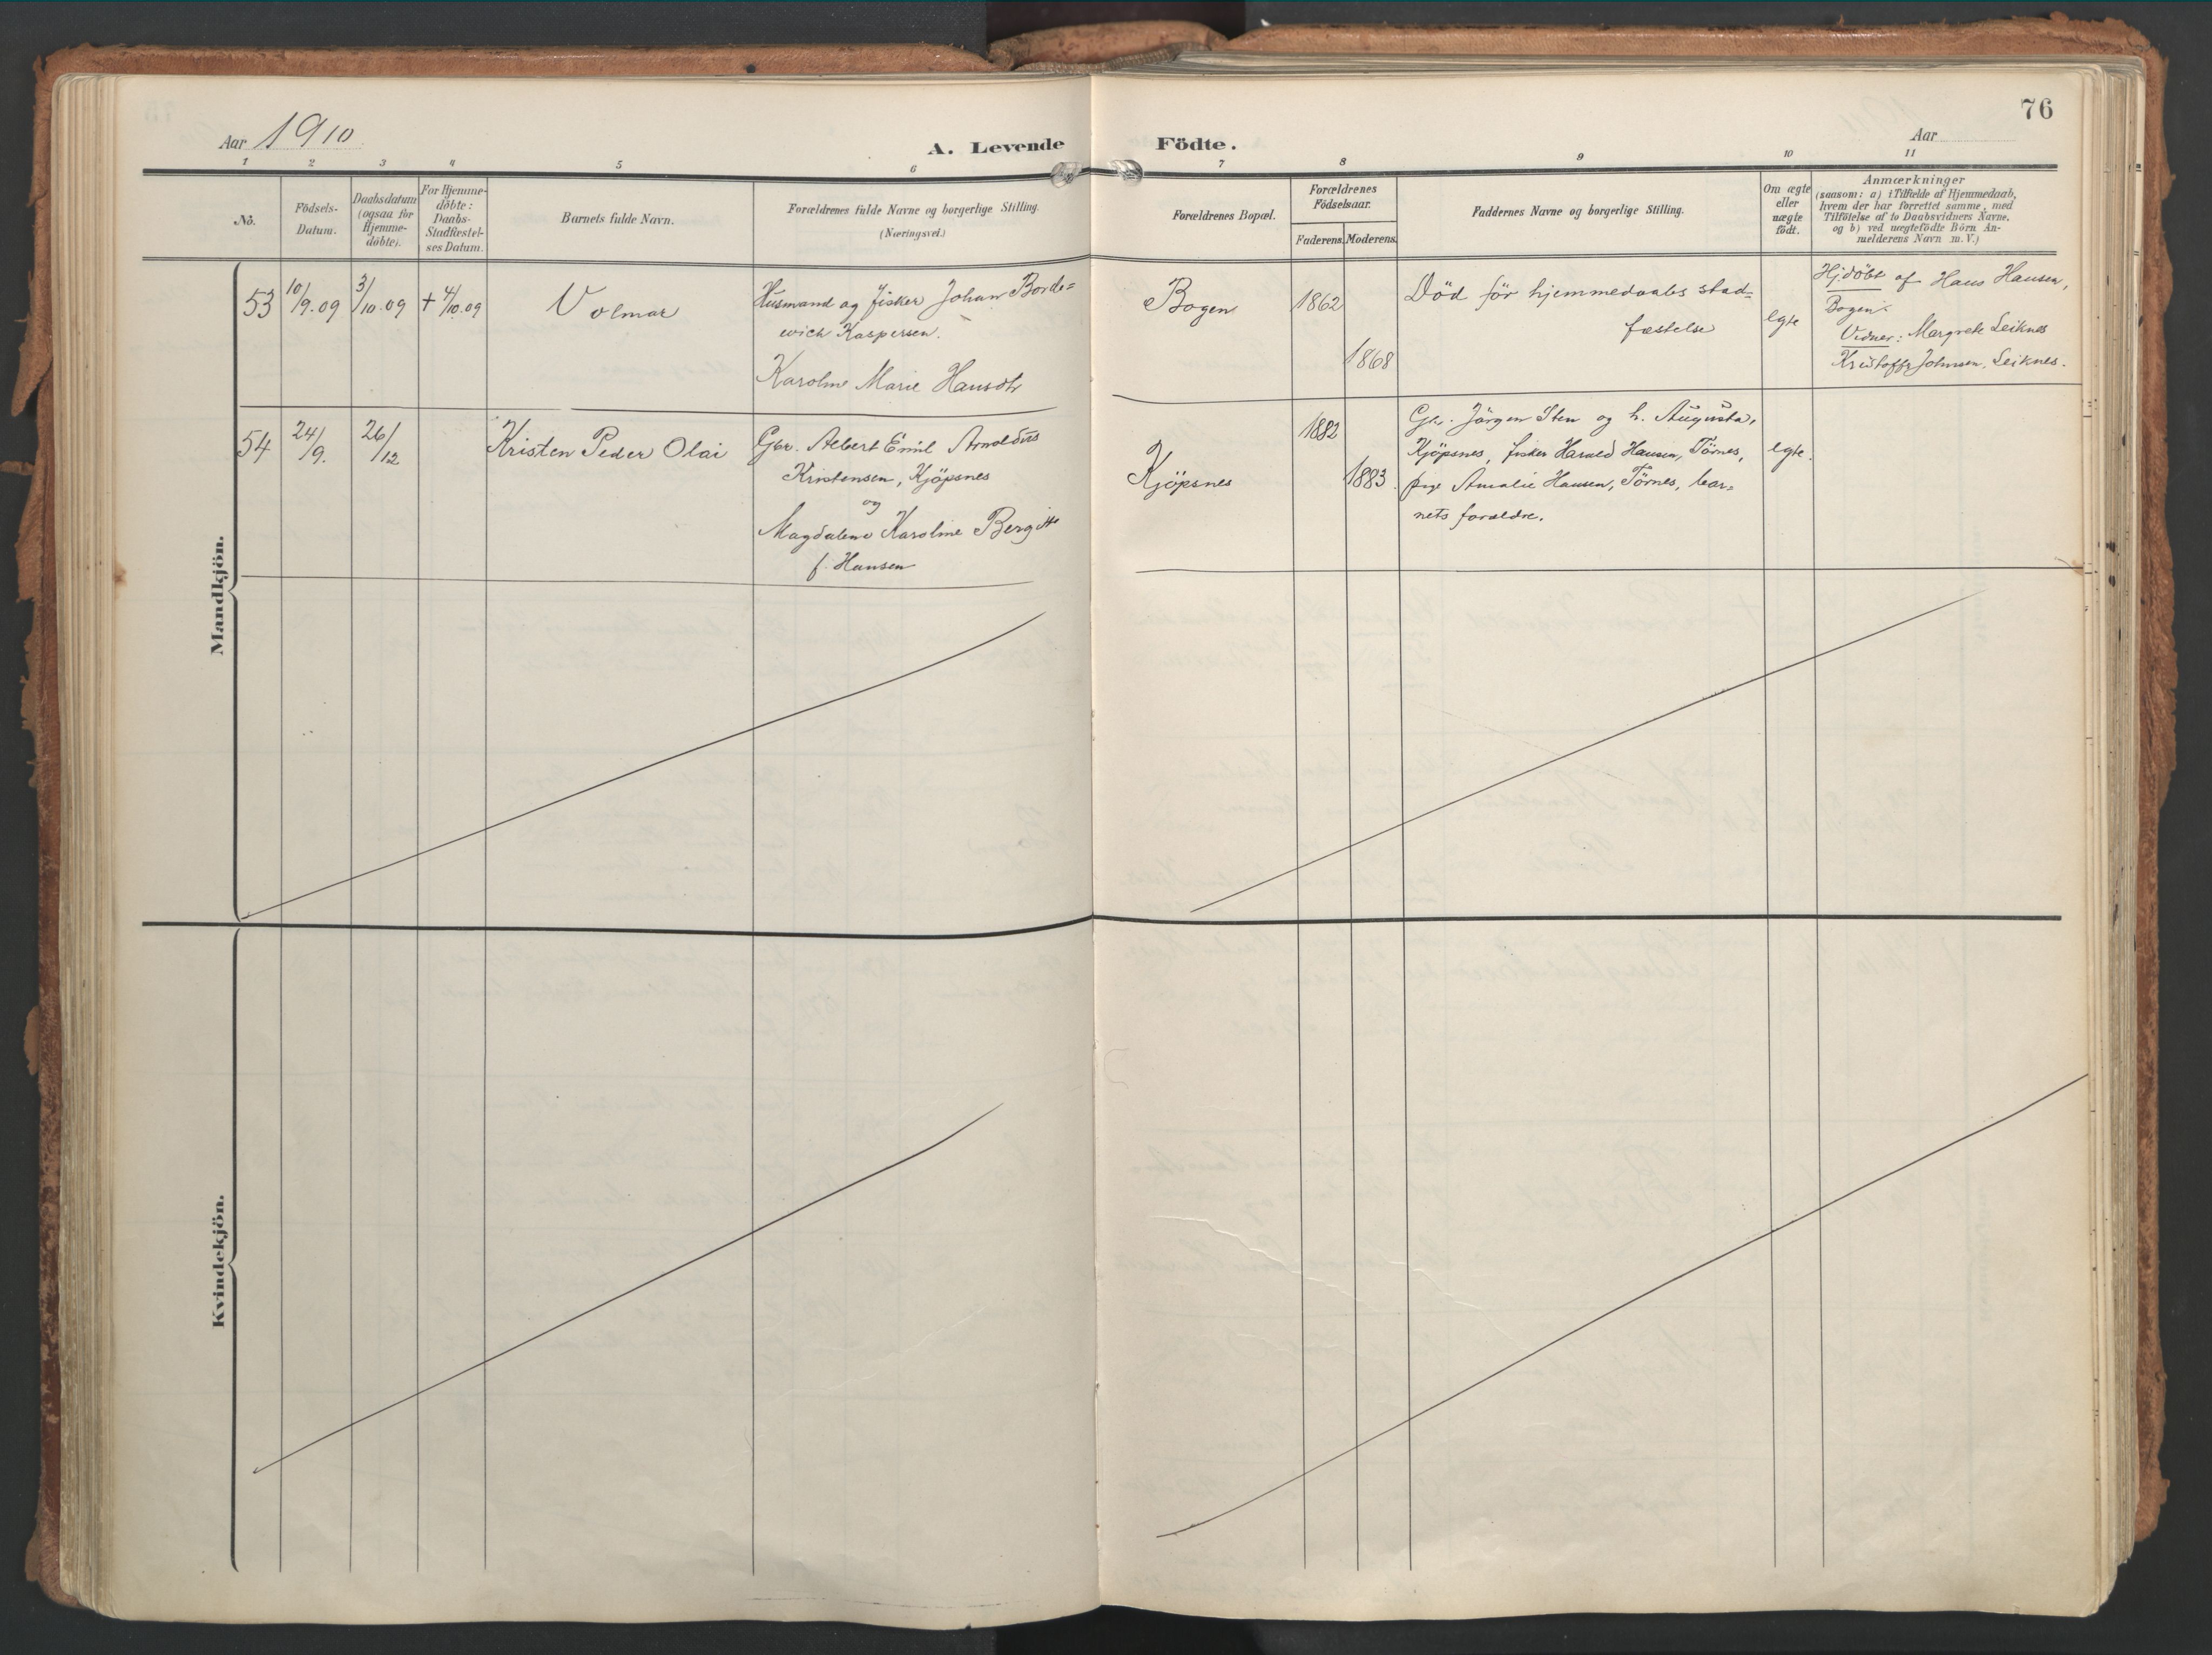 76
Aar 1910
A. Levende Födte.
Aar
1 2 3 4 5 6 7 8 9 10 11
Nö.
Födsels-
Datum.
Daabsdatum
(ogsaa for
Hjemme-
döbte).
For Hjemme-
döbte:
Daabs-
Stadfæstel-
ses Datum.
Barnets fulde Navn.
Forældrenes fulde Navne og borgerlige Stilling.
(Næringsvei.)
Forældrenes Bopæl.
Forældrenes
Födselsaar.
Faderens.
Moderens.
Faddernes Navne og borgerlige Stilling.
Om ægte
eller
uægte
födt.
Anmærkninger
(saasom: a) i Tilfælde af Hjemmedaab,
hvem der har forrettet samme, med
Tilföielse af to Daabsvidners Navne,
og b) ved uægtefödte Börn An-
melderens Navn m. V.)
Mandkjön.
53
10/9.09
3/10.09
+ 4/10.09
Volmar
Husmand og fisker Johan Borde=
wich Kaspersen.
Karoline Marie Hansdtr
Bogen
1862
1868
Död för hjemmedaabs stad=
fæstelse
egte
Hj.döbt af Hans Hansen,
Bogen.
Vidner: Margrete Leiknes
Kristoffer Johnsen, Leiknes.
54
24/9.
26/12
Kristen Peder Olai
Gbr. Albert Emil Arnoldus
Kristensen, Kjöpsnes
og
Magdalene Karoline Bergitte
f. Hansen
Kjöpsnes
1882
1883
Gbr. Jörgen Sten og h. Augusta,
Kjöpsnes, fisker Harald Hansen, Törnes,
pige Amalie Hansen, Törnes, bar=
nets forældre.
egte.
Kvindekjön.